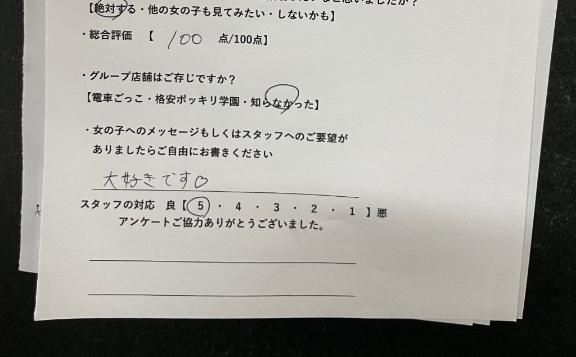 【絶対する・他の女の子も見てみたい・しないかも】
・総合評価 【 100 点/100点】
・グループ店舗はご存じですか？
【電車ごっこ・格安ポッキリ学園・知らなかった】
・女の子へのメッセージもしくはスタッフへのご要望が
ありましたらご自由にお書きください
大好きです♡
スタッフの対応 良【 5 ・ 4 ・ 3 ・ 2 ・ 1 】悪
アンケートご協力ありがとうございました。